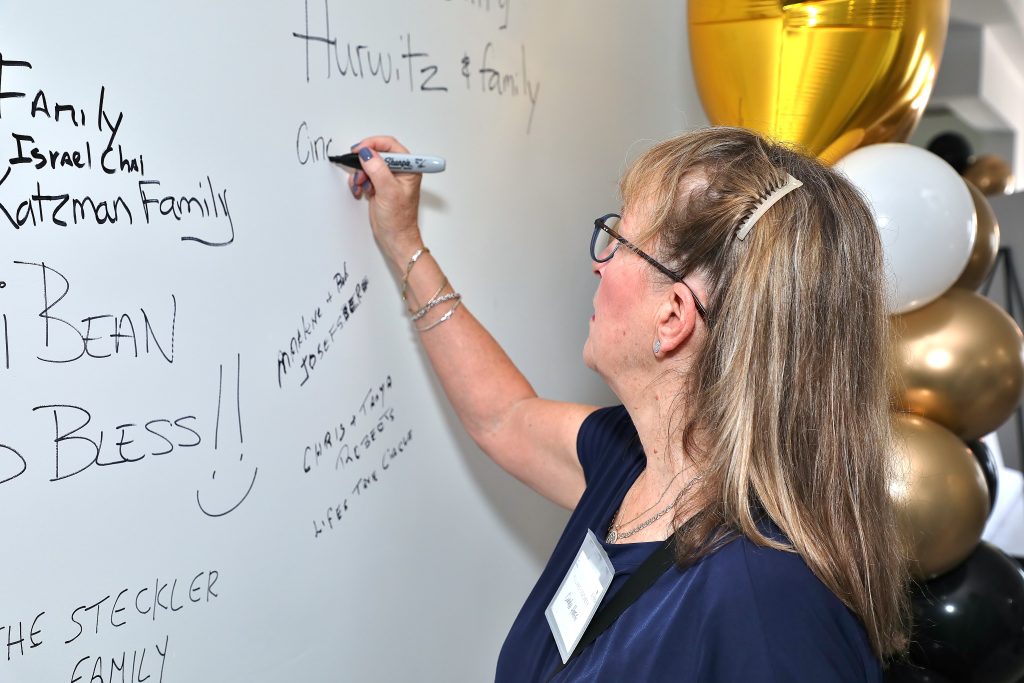 Hurwitz & family
Cinc
Sharpie
Family
Israel Chai
Katzman Family
BEAN
BLESS!!
MARLENE + Bob
JOSEFSBERG
CHRIS + TANYA
ROBERTS
LIFES TREE CIRCLE
THE STECKLER
FAMILY